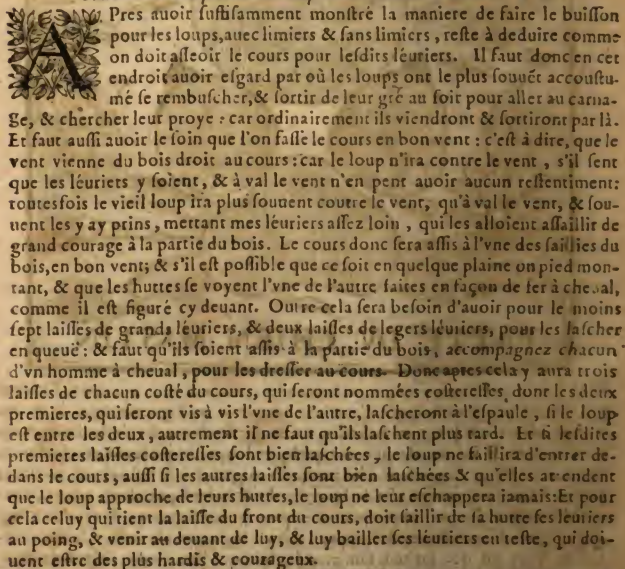 APres auoir suffisamment monstré la maniere de faire le buisson
pour les loups, auec limiers & sans limiers, reste à deduire comme
on doit asseoir le cours pour lesdits léuriers. Il faut donc en cet
endroit auoir esgard par où les loups ont le plus souuét accoustu-
mé se rembuscher, & sortir de leur gré au soir pour aller au carna-
ge, & chercher leur proye : car ordinairement ils viendront & sortiront par là.
Et faut aussi auoir le soin que l'on fasse le cours en bon vent : c'est à dire, que le
vent vienne du bois droit au cours : car le loup n'ira contre le vent, s'il sent
que les léuriers y soient, & à val le vent n'en peut auoir aucun ressentiment:
toutesfois le vieil loup ira plus souuent coutre le vent, qu'à val le vent, & sou-
uent les y ay prins, mettant mes léuriers assez loin, qui les alloient assaillir de
grand courage à la partie du bois. Le cours donc sera assis à l'vne des saillies du
bois, en bon vent; & s'il est possible que ce soit en quelque plaine ou pied mon-
tant, & que les huttes se voyent l'vne de l'autre faites en façon de fer à cheual,
comme il est figuré cy deuant. Outre cela sera besoin d'auoir pour le moins
sept laisses de grands léuriers, & deux laisses de legers léuriers, pour les lascher
en queuë : & faut qu'ils soient assis à la partie du bois, accompagnez chacun
d'vn homme à cheual, pour les dresser au cours. Donc apres cela y aura trois
laisses de chacun costé du cours, qui seront nommées costeresses, dont les deux
premieres, qui seront vis à vis l'vne de l'autre, lascheront à l'espaule, si le loup
est entre les deux, autrement il ne faut qu'ils laschent plus tard. Et si lesdites
premieres laisses costeresses sont bien laschées, le loup ne faillira d'entrer de-
dans le cours, aussi si les autres laisses sont bien laschées & qu'elles attendent
que le loup approche de leurs huttes, le loup ne leur eschappera iamais: Et pour
cela celuy qui tient la laisse du front du cours, doit saillir de sa hutte ses leuriers
au poing, & venir au deuant de luy, & luy bailler ses léuriers en teste, qui doi-
uent estre des plus hardis & courageux.